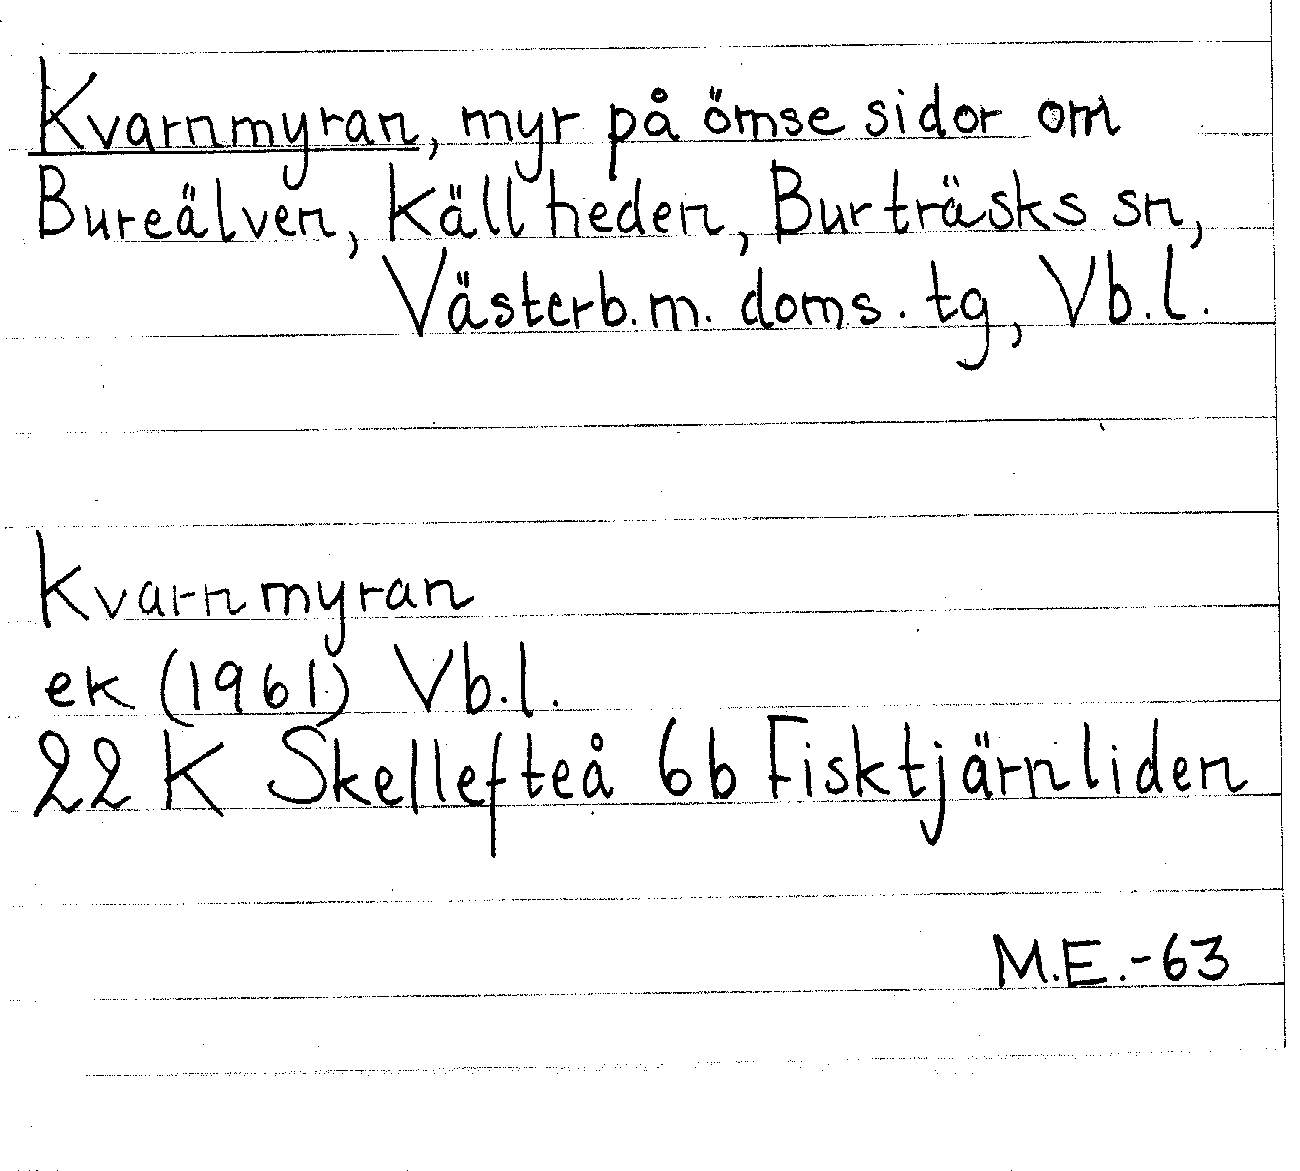 Kvarnmyran, myr på ömse sidor om
Bureälven, Källheden, Burträsks sn,
Västerb.m. doms. tg, Vb.l.
Kvarnmyran
ek (1961) Vb.l.
22 K Skellefteå 6b Fisktjärnliden
M.E.-63